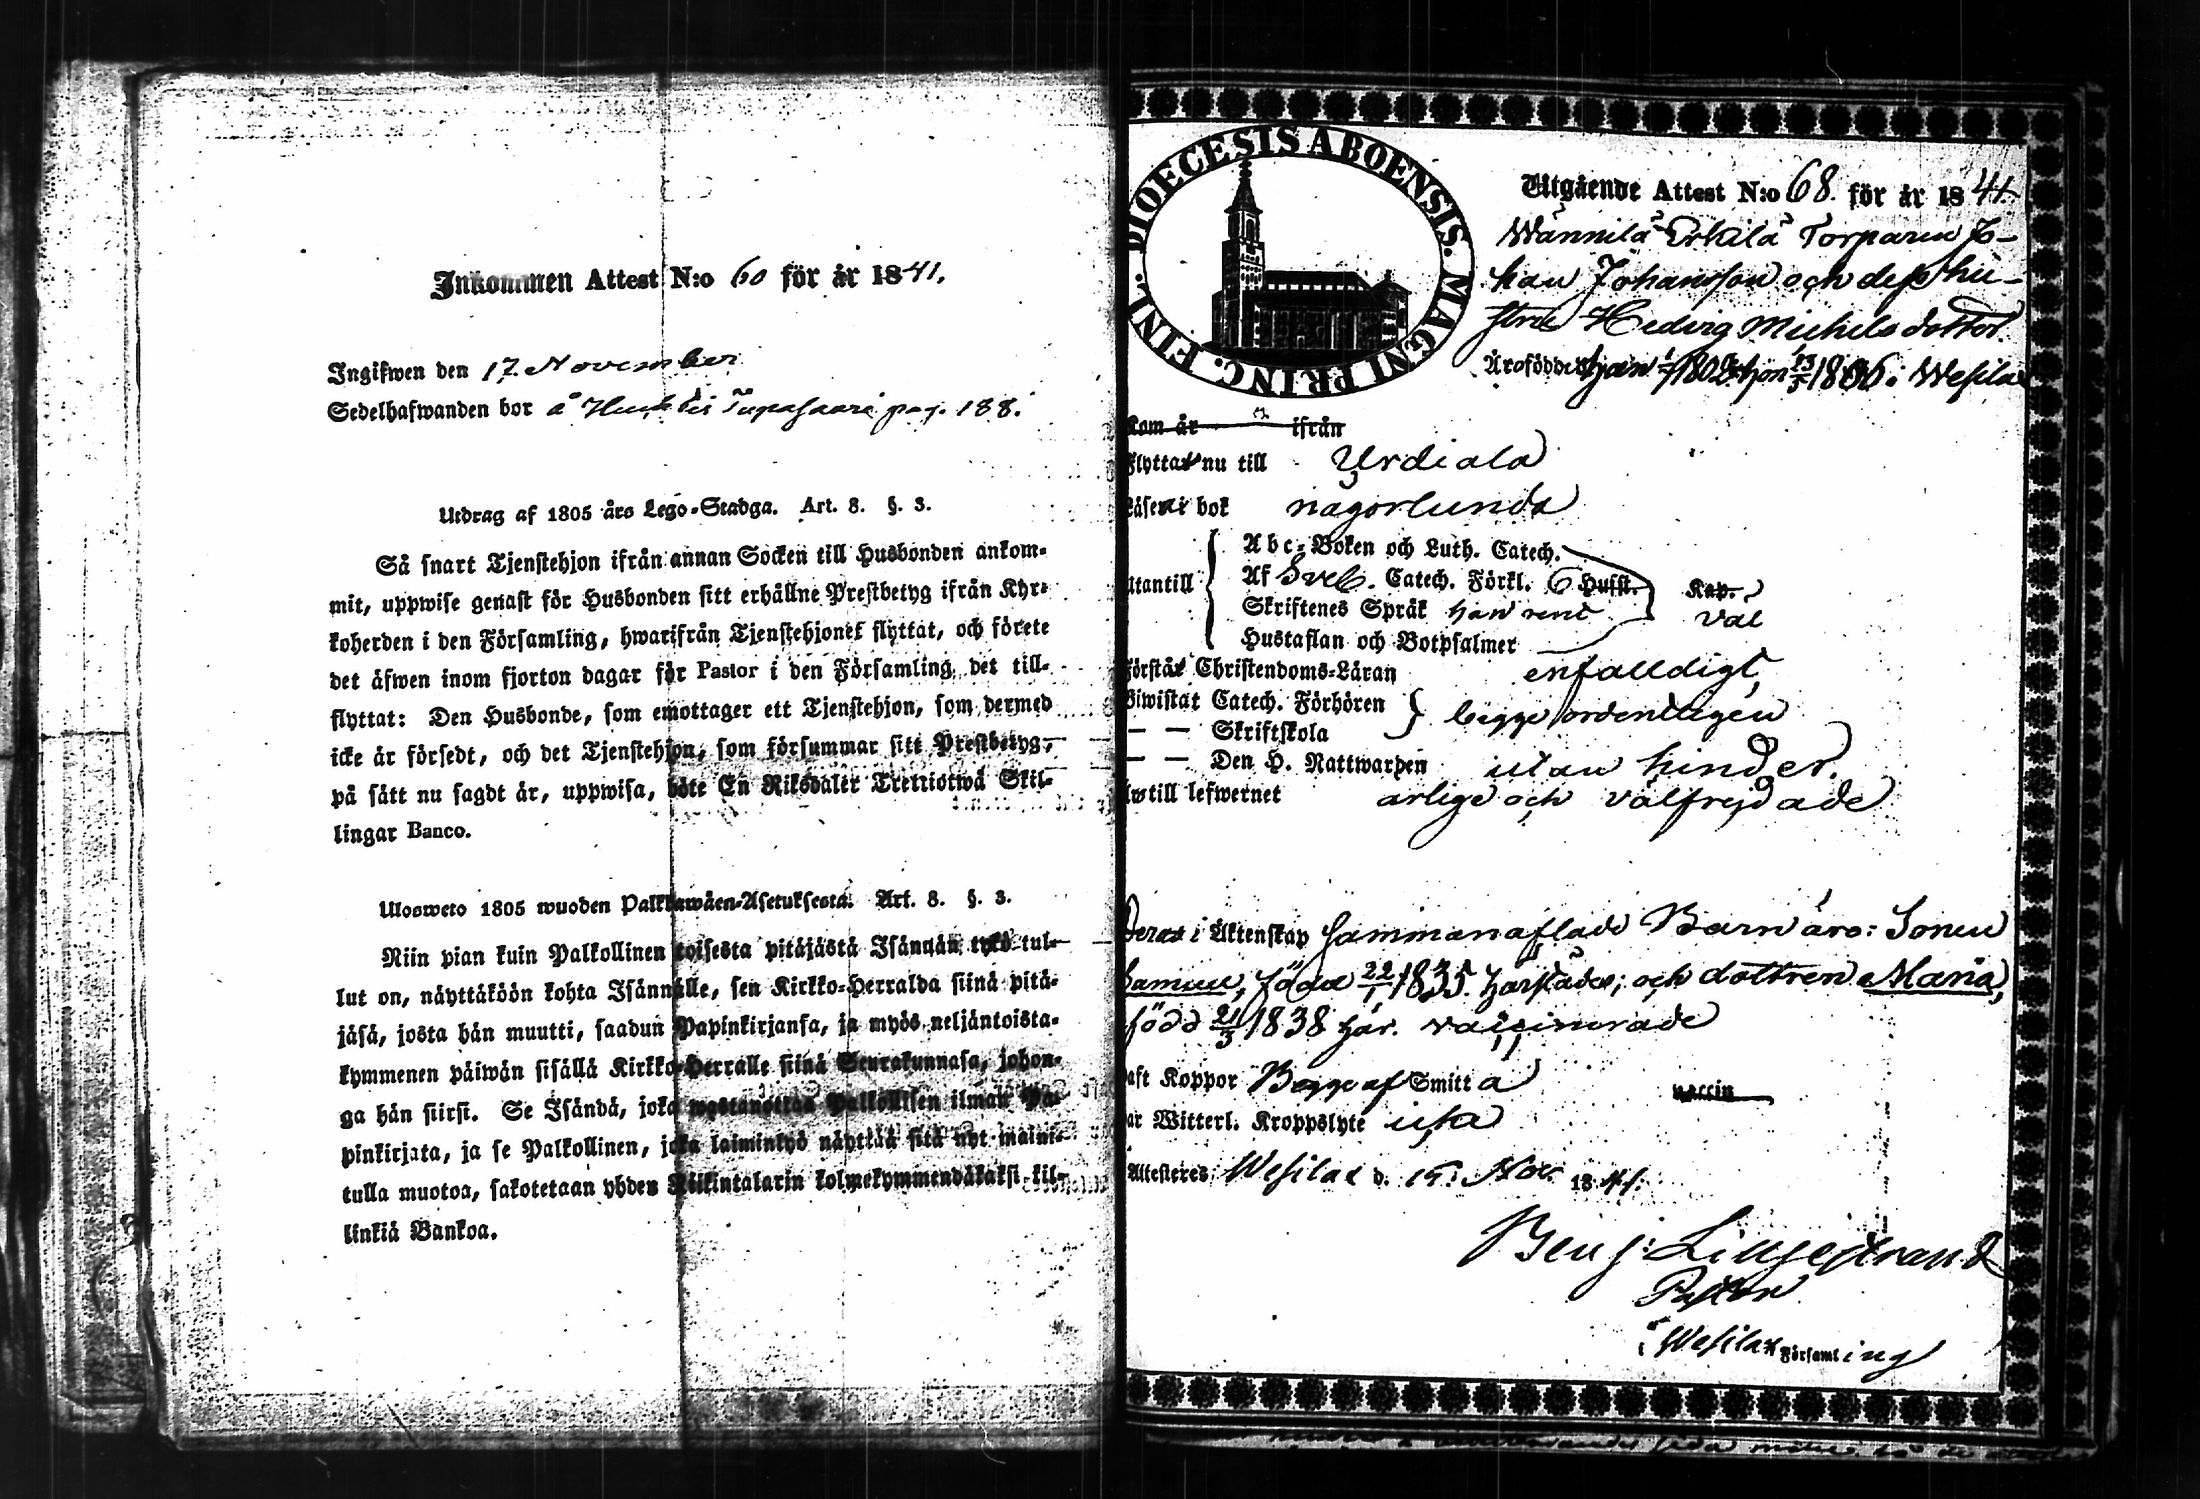 Inkommen Attest N:o 60 för år 1841.
Ingifwen den 17. November
Sedelhafwanden bor å Tupasaari pag. 188.
Utdrag af 1805 års Lego-Stadga. Art. 8. §. 3.
Så snart Tjenstehjon ifrån annan Socken till Husbonden ankom-
mit, uppwise genast för Husbonden sitt erhållne Prestbetyg ifrån Kyr-
koherden i den Församling, hwarifrån Tjenstehjonet flyttat, och förete
det äfwen inom fjorton dagar för Pastor i den Församling, det till-
flyttat: Den Husbonde, som emottager ett Tjenstehjon, som dermed
icke är försedt, och det Tjenstehjon, som försummar sitt Prestbetyg,
på sätt nu sagdt är, uppwisa, böte En Riksdaler Trettiotwå Skil-
lingar Banco.
Ulosweto 1805 wuoden Palkkawäen-Asetuksesta. Art. 8. §. 3.
Niin pian kuin Palkollinen toisesta pitäjästä Isännän tykö tul-
lut on, näyttäköön kohta Isännälle, sen Kirkko-Herralda siinä pitä-
jäsä, josta hän muutti, saadun Papinkirjansa, ja myös neljäntoista-
kymmenen päiwän sisällä Kirkko-Herralle siinä Seurakunnasa, johon-
ga hän siirsi. Se Isändä, joka wastanottaa Palkollisen ilman Pa-
pinkirjata, ja se Palkollinen, joka laiminlyö näyttää sitä nyt maini-
tulla muotoa, sakotetaan yhden Riikintalarin kolmekymmendäkaksi kil-
linkiä Bankoa.
DIOECESIS ABOENSIS. MAGNI PRINC. FINL.
Utgående Attest N:o 68. för år 1841.
Wännilä Erkilä Torparen Jo-
han Johansson och dess hu-
stru Hedvig Michelsdotter.
Äro födde han 1/7 180 hon 13/5 1806 i Wesilax
Kom år ifrån
Flytta nu till Urdiala
Läsen i bok någorlunda
Abc-Boken och Luth. Catech.
Af Sveb. Catech. Förkl. 6 Hufst. Kap.
Utantill Skriftenes Språk han rent väl
Hustaflan och Botpsalmer
Förstår Christendoms-Läran enfalldigt
Biwistat Catech. Förhören
— — Skriftskola begge ordentligen
— — Den H. Nattwarden utan hinder.
till lefwernet ärlige och välfrejdade
Deras i Äktenskap sammanaflade Barn äro: Sonen
Samuel, född 22/1 1835. härstädes; och dottren Maria,
född 21/3 1838 här. vaccinerade
aft Koppor Begge af Smitta vaccin
ar Witterl. Kroppslyte icke
Attesteres, Wesilax d. 15. Nov. 1841.
Benj: Liljestrand
Pastor
i Wesilax Församling